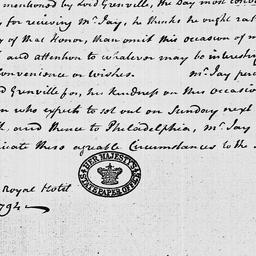 mentioned by Lord Grenville, the Day most conv
for receiving Mr. Jay, he thinks he ought rat
of that Honor, than omit this occasion of m
and attention to whatever may be interesting
onvenience or wishes. Mr. Jay
Grenville for, his kindness on this occasion
who expects to set out on Sunday next
and thence to Philadelphia, Mr. Jay
icate these agreable Circumstances to the
HER MAJESTY'S STATE PAPER OFFICE
Royal Hotel
794